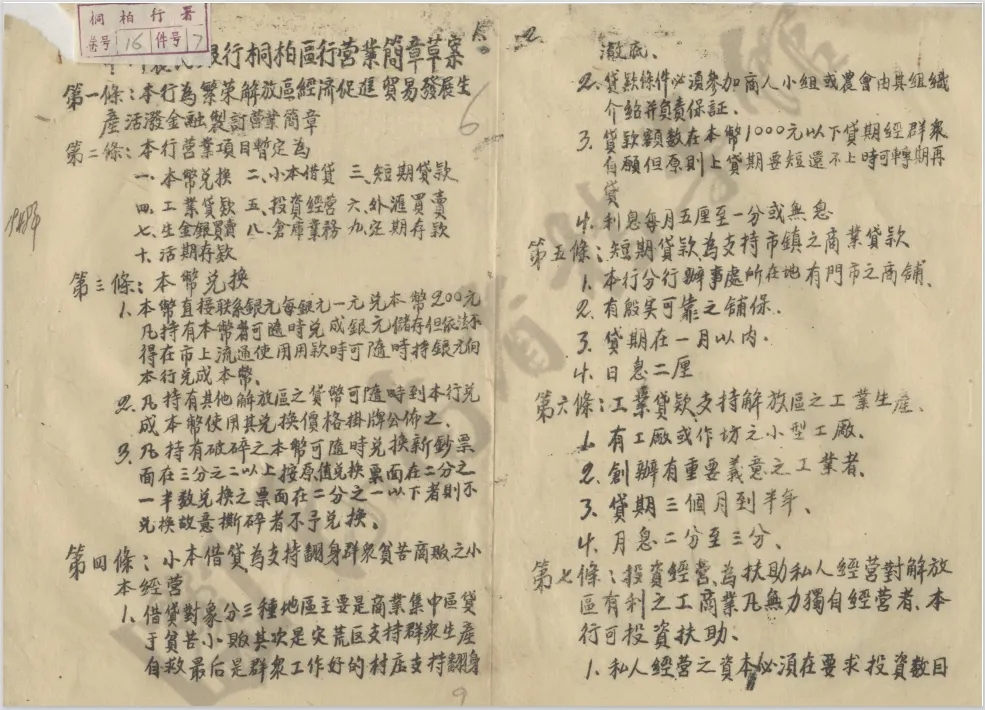 桐柏行署
卷号 16 件号 7
農民銀行桐柏區行营業簡章草案
第一條：本行為繁荣解放區經濟促進貿易發展生
產活潑金融製訂营業簡章
第二條：本行营業項目暫定為
一、本幣兑换 二、小本借貸 三、短期貸款
四、工業貸款 五、投資經营 六、外滙買賣
七、生金銀買賣 八、倉庫業務 九、定期存款
十、活期存款
第三條：本幣兑换
1、本幣直接联系銀元每銀元一元兑本幣200元
凡持有本幣者可隨時兑成銀元儲存但依法不
得在市上流通使用用款時可隨時持銀元向
本行兑成本幣。
2、凡持有其他解放區之貨幣可隨時到本行兑
成本幣使用其兑换價格掛牌公佈之。
3、凡持有破碎之本幣可隨時兑换新鈔票
面在三分之二以上按原值兑换票面在二分之
一半数兑换之票面在二分之一以下者則不
兑换故意撕碎者不予兑换。
第四條：小本借貸為支持翻身群衆貧苦商販之小
本經营
1、借貸對象分三種地區主要是商業集中區貸
于貧苦小販其次是灾荒区支持群衆生產
自救最后是群衆工作好的村庄支持翻身
9
6
2
澈底、
2、貸款條件必須參加商人小組或農會由其組織
介紹并負责保証。
3、貸款額数在本幣1000元以下貸期經群衆
自願但原則上貸期要短還不上時可轉期再
貸
4、利息每月五厘至一分或無息
第五條：短期貸款為支持市镇之商業貸款
1、本行分行辦事處所在地有門市之商舖、
2、有殷实可靠之舖保、
3、貸期在一月以内、
4、日息二厘
第六條：工業貸款、支持解放區之工業生産、
1、有工廠或作坊之小型工廠、
2、創辦有重要義意之工業者、
3、貸期三個月到半年、
4、月息二分至三分、
第七條：投資經营、為扶助私人經营對解放
區有利之工商業凡無力獨自經营者、本
行可投資扶助、
1、私人經营之資本必須在要求投資数目